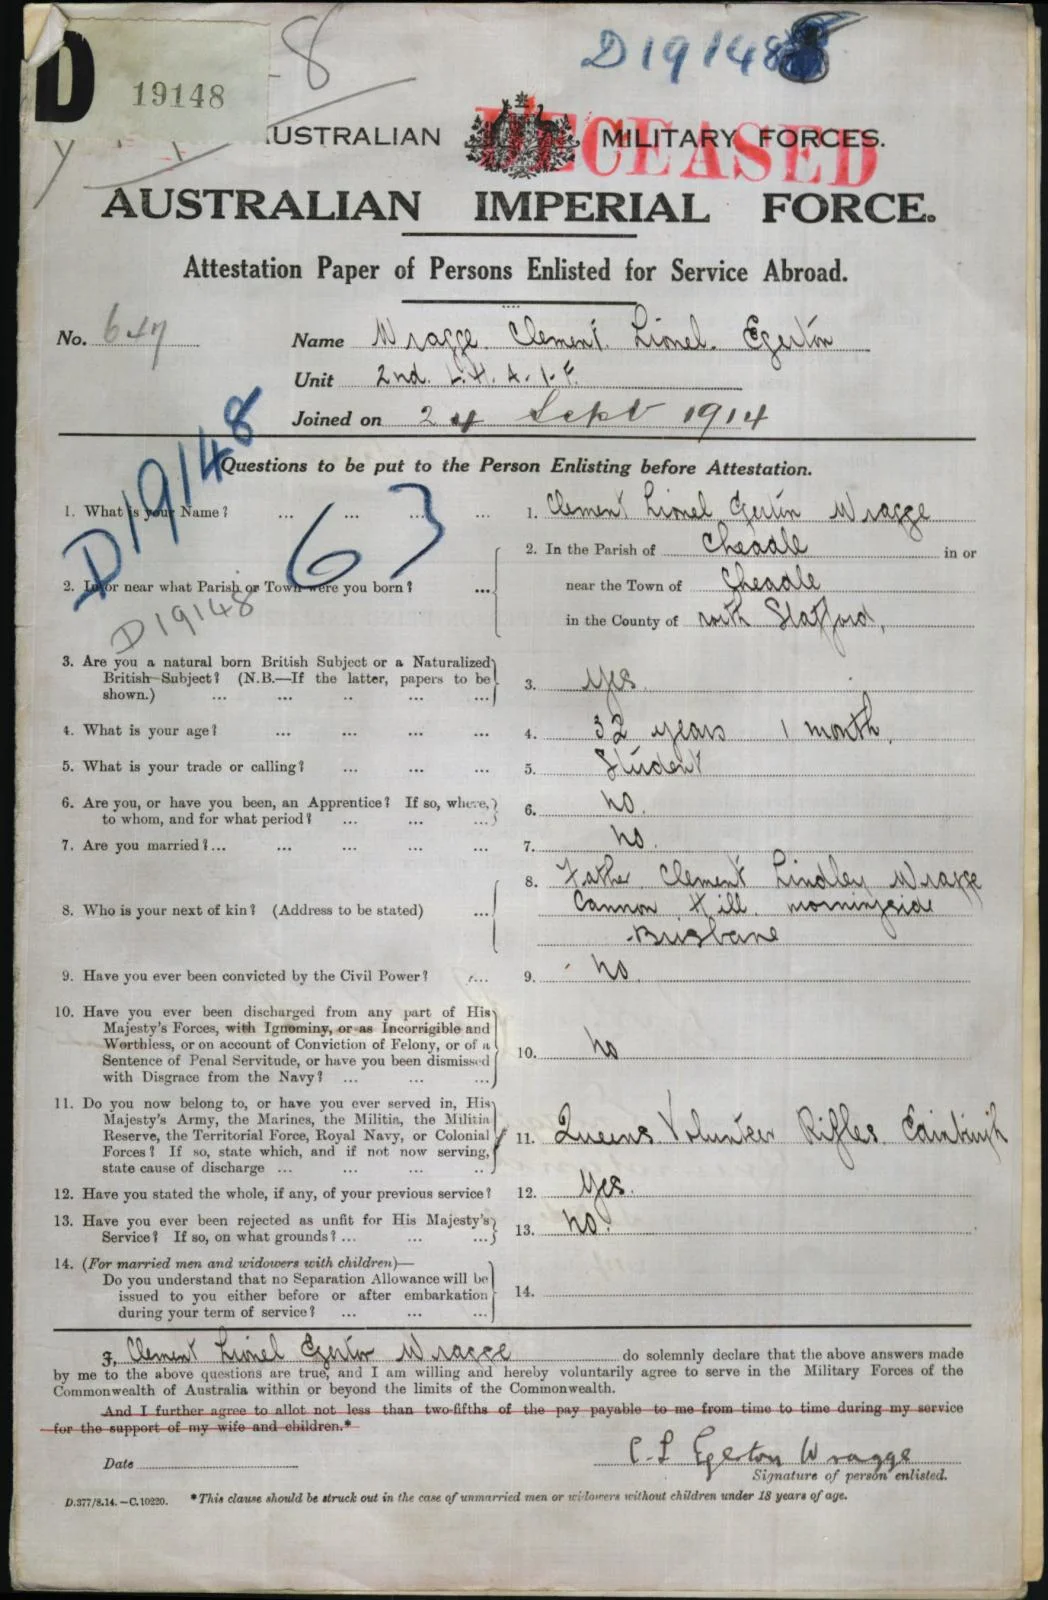 D 19148
8
D19148
AUSTRALIAN MILITARY FORCES.
DECEASED
AUSTRALIAN IMPERIAL FORCE.
Attestation Paper of Persons Enlisted for Service Abroad.
No. 647
Name Wragge Clement Lionel Egerton
Unit 2nd. L.H. A.I.F.
Joined on 24 Sept 1914
D19148
Questions to be put to the Person Enlisting before Attestation.
63
1. What is your Name? ... ... ... ... 1. Clement Lionel Egertin Wragge
2. In or near what Parish or Town were you born? ... 2. In the Parish of Cheadle in or
near the Town of Cheadle
in the County of north Stafford,
D19148
3. Are you a natural born British Subject or a Naturalized
British Subject? (N.B.—If the latter, papers to be
shown.) ... ... ... ... ... 3. yes.
4. What is your age? ... ... ... ... 4. 32 years 1 month.
5. What is your trade or calling? ... ... ... 5. Student
6. Are you, or have you been, an Apprentice? If so, where,
to whom, and for what period? ... ... ... 6. no.
7. Are you married?... ... ... ... ... 7. no.
8. Who is your next of kin? (Address to be stated) ... 8. Father Clement Lindley Wragge
Cannon Hill morningside
Brisbane
9. Have you ever been convicted by the Civil Power? ... 9. no
10. Have you ever been discharged from any part of His
Majesty's Forces, with Ignominy, or as Incorrigible and
Worthless, or on account of Conviction of Felony, or of a
Sentence of Penal Servitude, or have you been dismissed
with Disgrace from the Navy? ... ... ... 10. no
11. Do you now belong to, or have you ever served in, His
Majesty's Army, the Marines, the Militia, the Militia
Reserve, the Territorial Force, Royal Navy, or Colonial
Forces? If so, state which, and if not now serving,
state cause of discharge ... ... ... .. 11. Queens Volunteer Rifles Edinburgh
12. Have you stated the whole, if any, of your previous service? 12. Yes.
13. Have you ever been rejected as unfit for His Majesty's
Service? If so, on what grounds? ... ... ... 13. no.
14. (For married men and widowers with children)—
Do you understand that no Separation Allowance will be
issued to you either before or after embarkation
during your term of service? ... ... ... 14.
I, Clement Lionel Egerton Wragge do solemnly declare that the above answers made
by me to the above questions are true, and I am willing and hereby voluntarily agree to serve in the Military Forces of the
Commonwealth of Australia within or beyond the limits of the Commonwealth.
And I further agree to allot not less than two-fifths of the pay payable to me from time to time during my service
for the support of my wife and children.*
Date
C. L Egerton Wragge
Signature of person enlisted.
D.377/8.14.—C.10220. *This clause should be struck out in the case of unmarried men or widowers without children under 18 years of age.